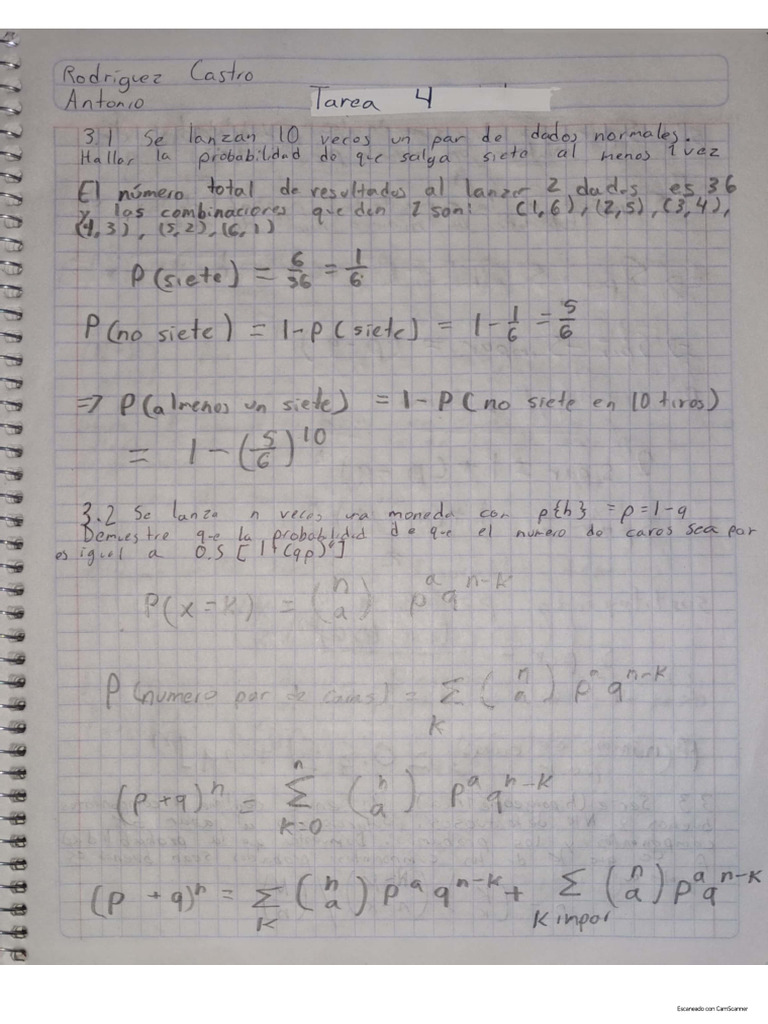 Rodríguez Castro
Antonio
Tarea 4
3.1 Se lanzan 10 veces un par de dados normales.
Hallar la probabilidad de que salga siete al menos 1 vez
El número total de resultados al lanzar 2 dados es 36
y las combinaciones que den 7 son: (1,6), (2,5), (3,4),
(4,3), (5,2), (6,1)
P(siete) = 6/36 = 1/6
P(no siete) = 1-P(siete) = 1-1/6 = 5/6
=> P(al menos un siete) = 1-P(no siete en 10 tiros)
= 1-(5/6)^10
3.2 Se lanza n veces una moneda con p{h} = p = 1-q
Demuestre que la probabilidad de que el numero de caras sea par
es igual a 0.5 [1+(qp)^n]
P(x=k) = (n a) p^a q^n-k
P(numero par de caras) = Σ K (n a) p^a q^n-k
(p+q)^n = Σ n K=0 (n a) p^a q^n-k
(p+q)^n = Σ K (n a) p^a q^n-k + Σ K inpar (n a) p^a q^n-k
Escaneado con CamScanner